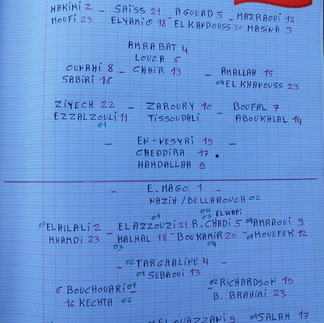 HAKIMI 2 - SAÏSS 21 AGUERD 5 - MAZRAOUI 12
MOUFI 23 - ELYAMIQ 18 - EL KANDOUSS 20 MASINA 3
AMRABAT 4
LOUZA 6
OUNAHI 8 - CHAIR 13 - AMALLAH 15
SABIRI 16 EL KHANOUSS 23
ZIYECH 22 - ZAROURY 10 - BOUFAL 7
EZZALZOULI 11 TISSOUDALI - ABOUKHLAL 14
01
- EN-NESYRI 19 -
CHEDDIRA 17
HAMDALLAH 9
- E. MAGO 1 -
NAZIH / BELLAROUCH 02
ELHILALI 2 - EL AZZOUZI 21 R. CHADI 5 - AMRAOUI 3
HHAMDI 23 - HALHAL 18 - BOUKAMIR 20 - MOUEFEK 12
- 02 TARGHALINE 4 -
01 SEBAOUI 13
6 BOUCHOUARI 01 - 02 RICHARDSON 19
16 KECHTA 02 B. BRAHIMI 23
EL OUAZZANI 9 01 SALAH 17